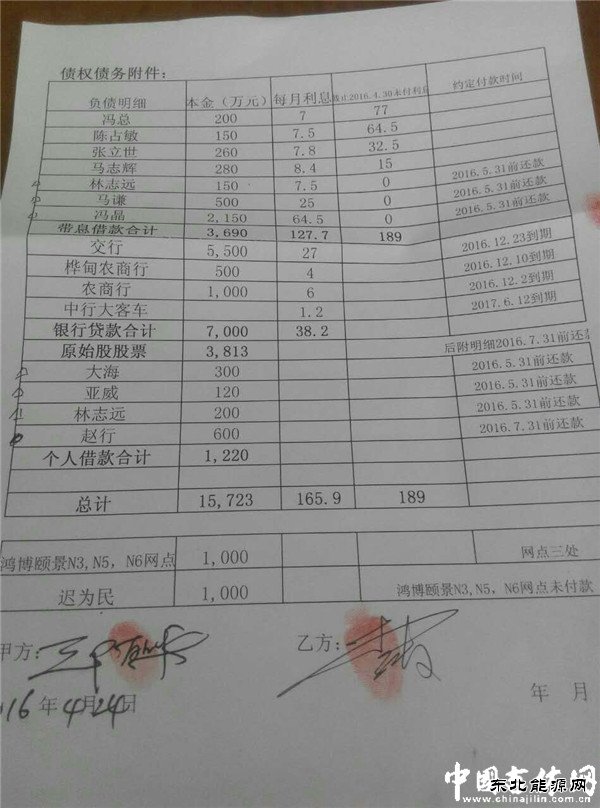 债权债务附件：
负债明细 本金（万元） 每月利息 截止2016.4.30未付利息 约定付款时间
冯总 200 7 77
陈占敏 150 7.5 64.5
张立世 260 7.8 32.5
马志辉 280 8.4 15
林志远 150 7.5 0 2016.5.31前还款
马谦 500 25 0 2016.5.31前还款
冯晶 2,150 64.5 0 2016.5.31前还款
带息借款合计 3,690 127.7 189
交行 5,500 27 2016.12.23到期
桦甸农商行 500 4 2016.12.10到期
农商行 1,000 6 2016.12.2到期
中行大客车 1.2 2017.6.12到期
银行贷款合计 7,000 38.2
原始股股票 3,813 后附明细2016.7.31前还款
大海 300 2016.5.31前还款
亚威 120 2016.5.31前还款
林志远 200 2016.5.31前还款
赵行 600 2016.7.31前还款
个人借款合计 1,220
总计 15,723 165.9 189
鸿博颐景N3,N5，N6网点 1,000 网点三处
迟为民 1,000 鸿博颐景N3,N5，N6网点未付款
甲方： 乙方：
016年4月24日 年 月
中国吉林网
东北能源网
www.chinajilin.com.cn